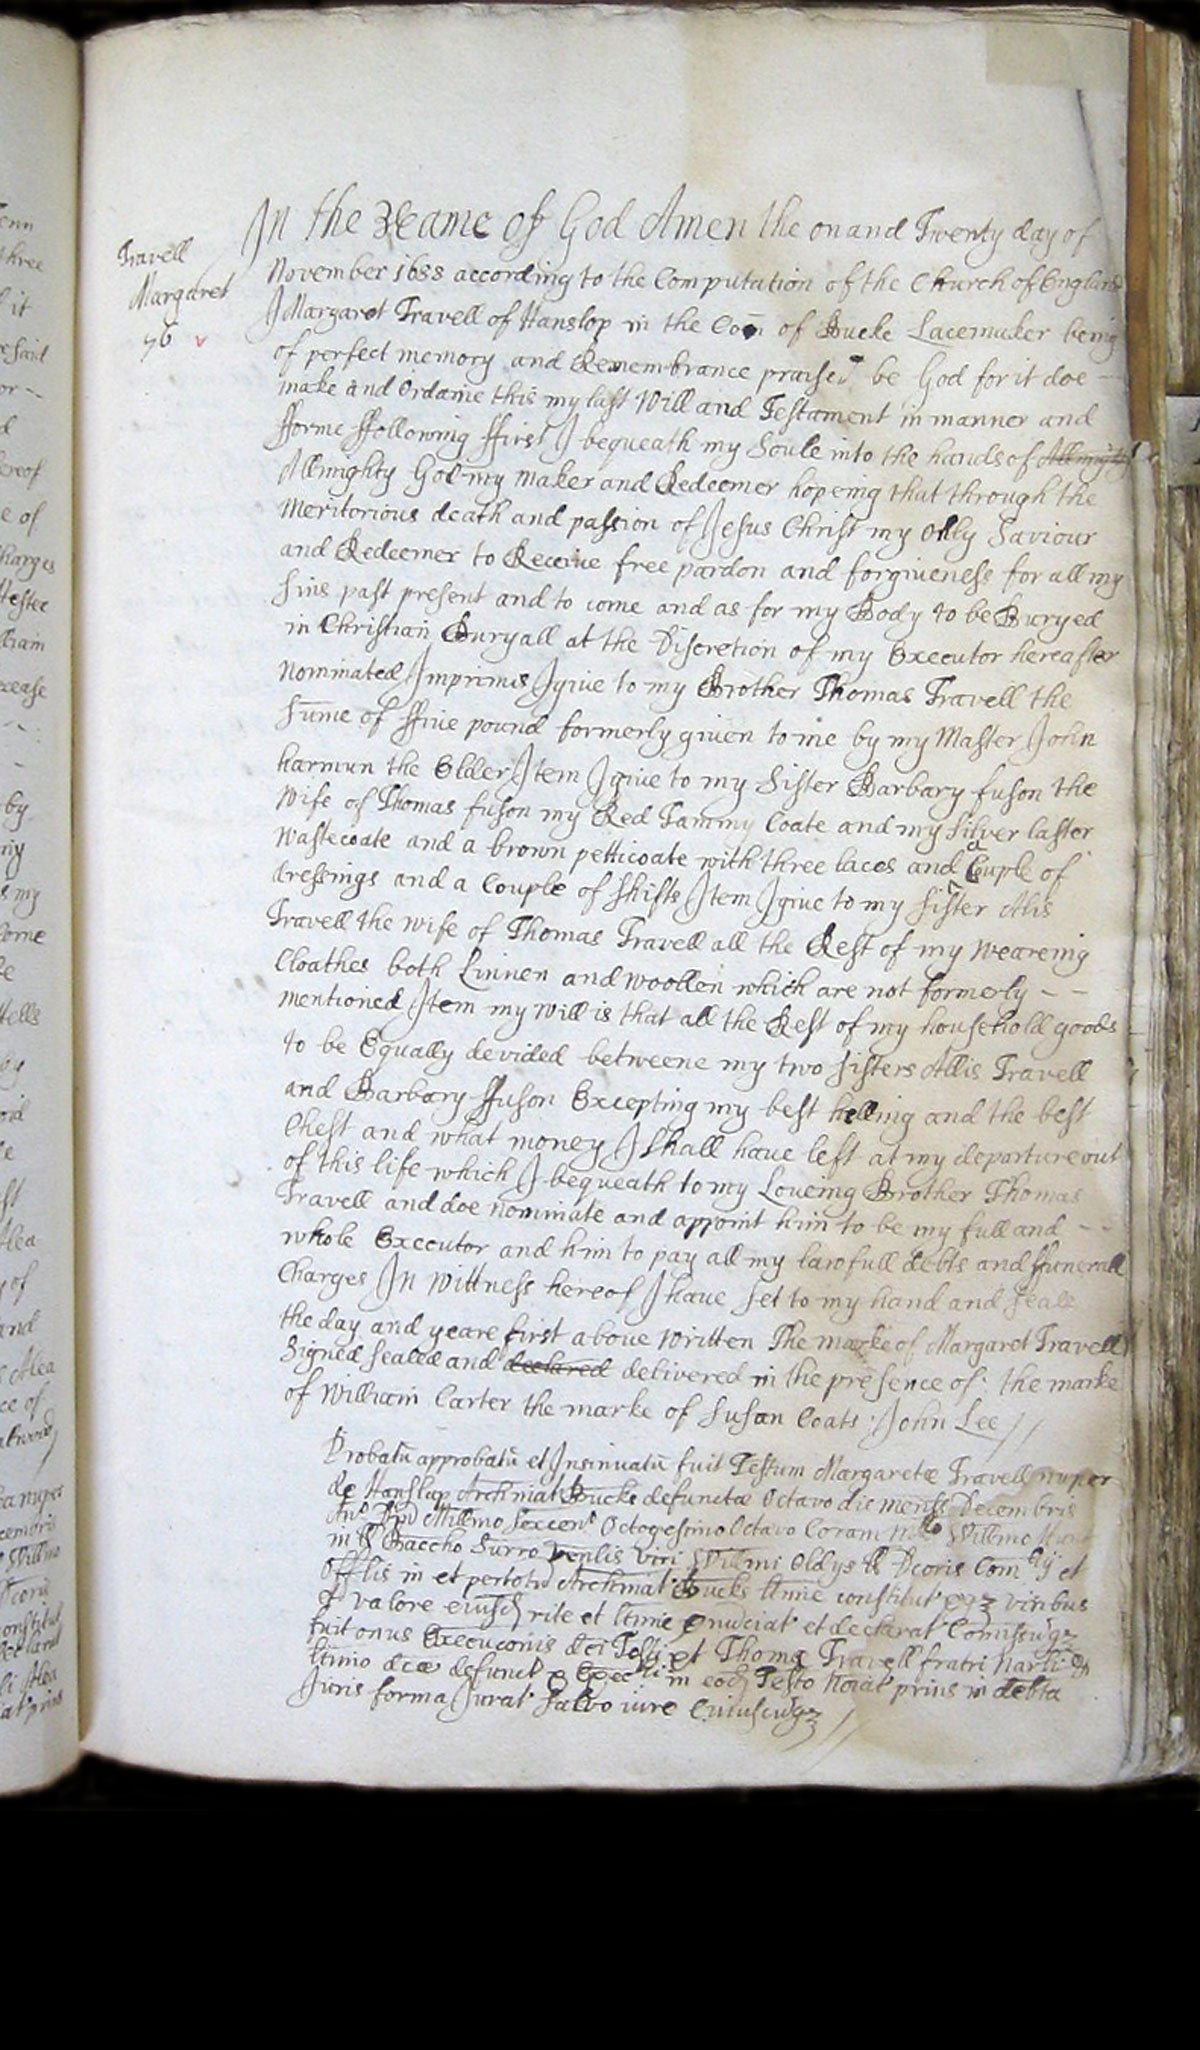 Travell
Margaret
76
In the Name of God Amen the on and Twenty day of
November 1688 according to the Computation of the Church of England
I Margaret Travell of Hanslop in the Con̄ of Bucke Lacemaker being
of perfect memory and Remembrance praised be God for it doe -
make and Ordaine this my last Will and Testament in manner and
fforme ffollowing ffirst I bequeath my Soule into the hands of Allmighty
Allmighty God my maker and Redeemer hopeing that through the
Meritorious death and passion of Jesus Christ my Only Saviour
and Redeemer to Receive free pardon and forgiveness for all my
sins past present and to come and as for my Body to be Buryed
in Christian Buryall at the Discretion of my Executor hereafter
Nominated Imprimis I give to my Brother Thomas Travell the
sume of ffive pound formerly given to me by my Master John
harmun the Elder Item I give to my Sister Barbary fuson the
Wife of Thomas fuson my Red Tammy Coate and my silver laster
Wastecoate and a brown petticoate with three laces and a Cuple of
dressings and a Couple of shifts Item I give to my sister Alis
Travell the wife of Thomas Travell all the Rest of my weareing
Cloathes both Linnen and woollen which are not formerly - -
mentioned Item my will is that all the Rest of my household goods
to be Equally devided betweene my two sisters Allis Travell
and Barbary ffuson Excepting my best helling and the best
Chest and what money I shall have left at my departure out
of this life which I bequeath to my Loveing Brother Thomas
Travell and doe nominate and appoint him to be my full and - -
whole Executor and him to pay all my lawfull debts and ffunerall
Charges In Wittness hereof I have set to my hand and seale
the day and yeare first above written The marke of Margaret Travell
Signed sealed and declared delivered in the presence of: the marke
of William Carter the marke of Susan Coats: John Lee
Probatū approbatū et Insinuatū fuit Testum Margaretæ Travell nuper
de Hanslap Archinat Bucks defunctæ Octavo die mensis Decembris
Ano Dni Millmo Sexcent Octogesimo Octavo Coram Willmo
in Baccho Surro venlis viri Willmi Oldys Dcoris Com et
Offlis in et per totū Archinat Bucks ltime constitut viribus
valore eiusd rite et ltime declarat Comissuqz
fuit onus Execuconis dci Testi Thomæ Travell fratri
ltimo dcæ defunct in eod Testo Noiat prius in debta
Juris forma Jurat salvo iure Cuiuscuqz